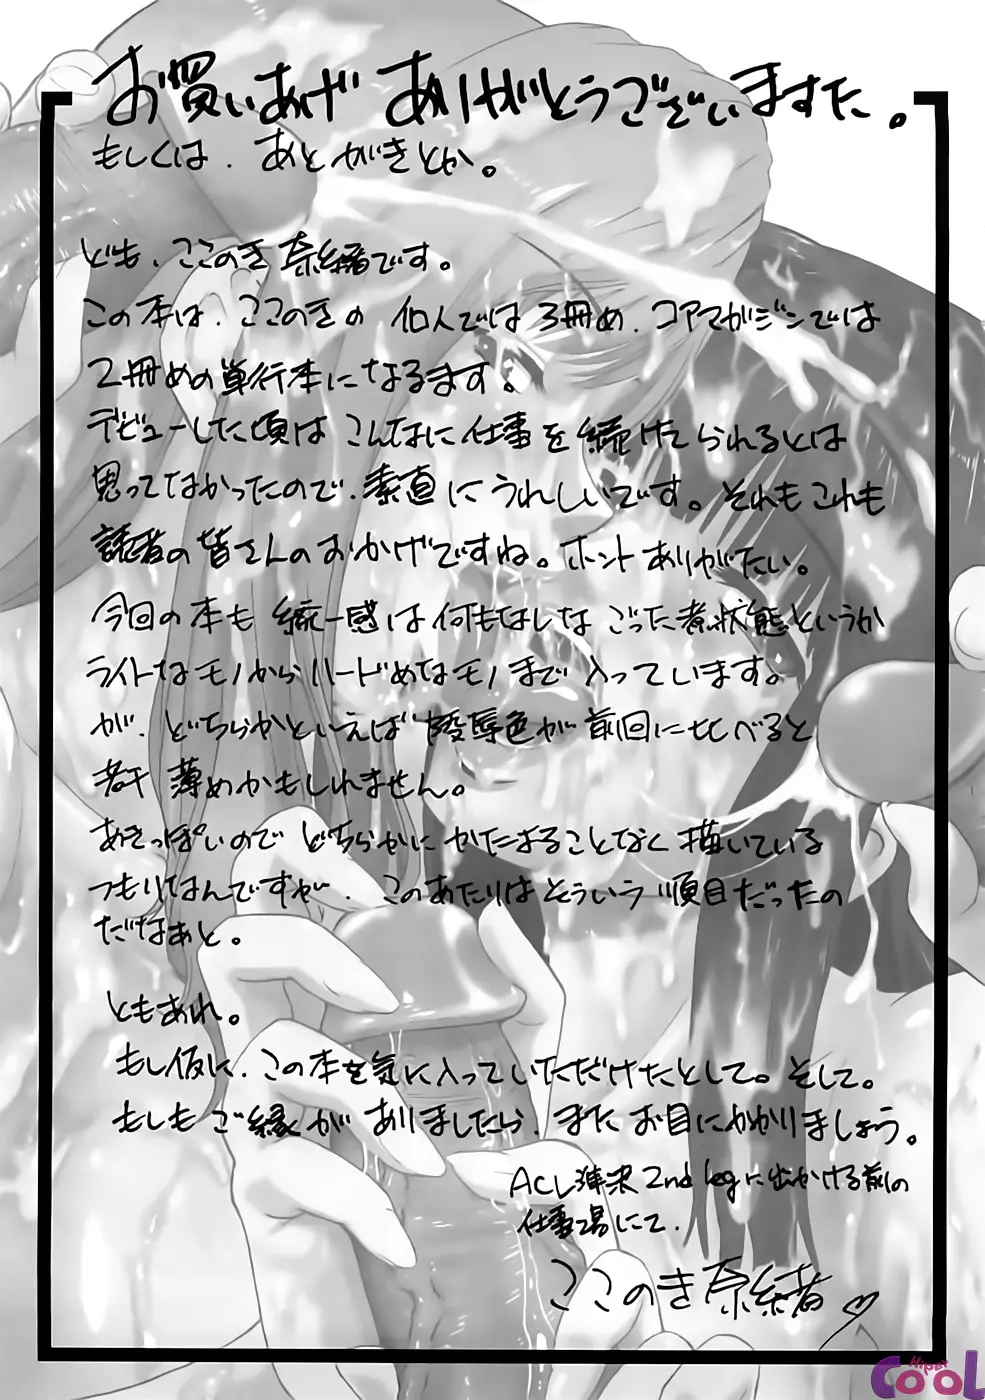 お買いあげ ありがとうございますた。
もしくは、あとがきとか。
ども、ここのき奈緒です。
この本は、ここのきの 個人では3冊め、コアマガジンでは
2冊めの単行本になるます。
デビューした頃は こんなに仕事を続けてられるとは
思ってなかったので、素直にうれしいです。それもこれも
読者の皆さんのおかげですね。ホントありがたい。
今回の本も 統一感は何もはしな ごった煮状態というか
ライトなモノからハードめなモノまで入っています。
が、どちらかといえば 陵辱色が 前回に比べると
若干 薄めかもしれません。
あきっぽいので どちらかに かたまることなく 描いている
つもりなんですが、このあたりはそういう 順目だったの
だなぁと。
ともあれ。
もし仮に、この本を気に入っていただけたとして。そして。
もしもご縁が ありましたら、また お目にかかりましょう。
ACL準決 2nd legに出かける前の
仕事場にて、
ここのき奈緒
Hiper
CoOL